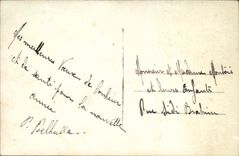 Mes meilleurs Vœux de bonheur
et de santé pour la nouvelle
année
P.
Monsieur et Madame
et leurs Enfants
Rue Sidi Brahim